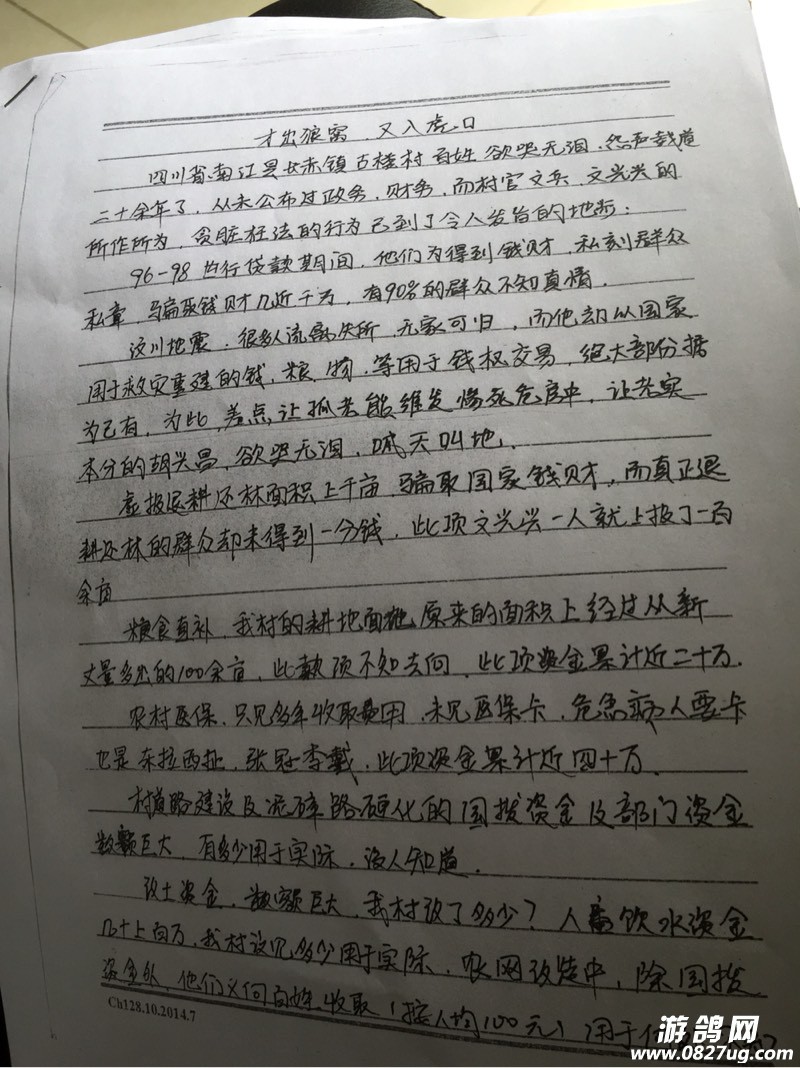 才出狼窝 又入虎口
四川省南江县女赤镇古楼村百姓欲哭无泪、怨声载道
二十余年了,从未公布过政务,财务,而村官文兵、文光兴的
所作所为,贪脏枉法的行为已到了令人发指的地步:
96-98 行贷款其间,他们为得到钱财,私刻群众
私章,骗取钱财几近千万,有90%的群众不知真情.
汶川地震,很多人流离失所,无家可归,而他却从国家
用于救灾重建的钱、粮、物、等用于钱权交易,绝大部份据
为己有,为此,差点让孤老熊维发惨死危房中,让老实
本分的胡兴昌,欲哭无泪,喊天叫地.
虚报退耕还林面积上千亩,骗取国家钱财,而真正退
耕还林的群众却未得到一分钱,此项文光兴一人就上报了一百
余亩
粮食直补,我村的耕地面积原来的面积上经过从新
丈量多出的100余亩,此款项不知去向,此项资金累计近二十万.
农村医保,只见多年收取费用,未见医保卡,危急病人要卡
也是东拉西扯,张冠李戴,此项资金累计近四十万.
村道路建设及泥碎路硬化的国拨资金及部门资金
数额巨大,有多少用于实际,没人知道.
改土资金,数额巨大,我村改了多少?人畜饮水资金
几十上百万,我村没见多少用于实际,农网改造中,除国拨
资金外,他们又向百姓收取(按人均100元)用于
Ch128.10.2014.7
游鸽网
www.0827ug.com